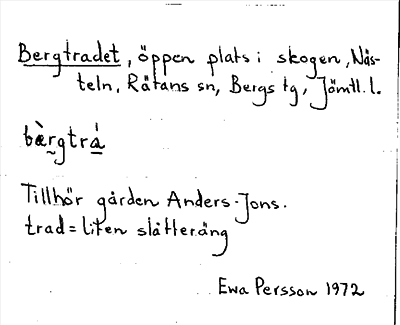 Bergtradet, öppen plats i skogen, Näs-
teln, Rätans sn, Bergs tg, Jämtl. l.
bæ̀rgtrá
Tillhör gården Anders-Jons.
trad = liten slåtteräng
Ewa Persson 1972